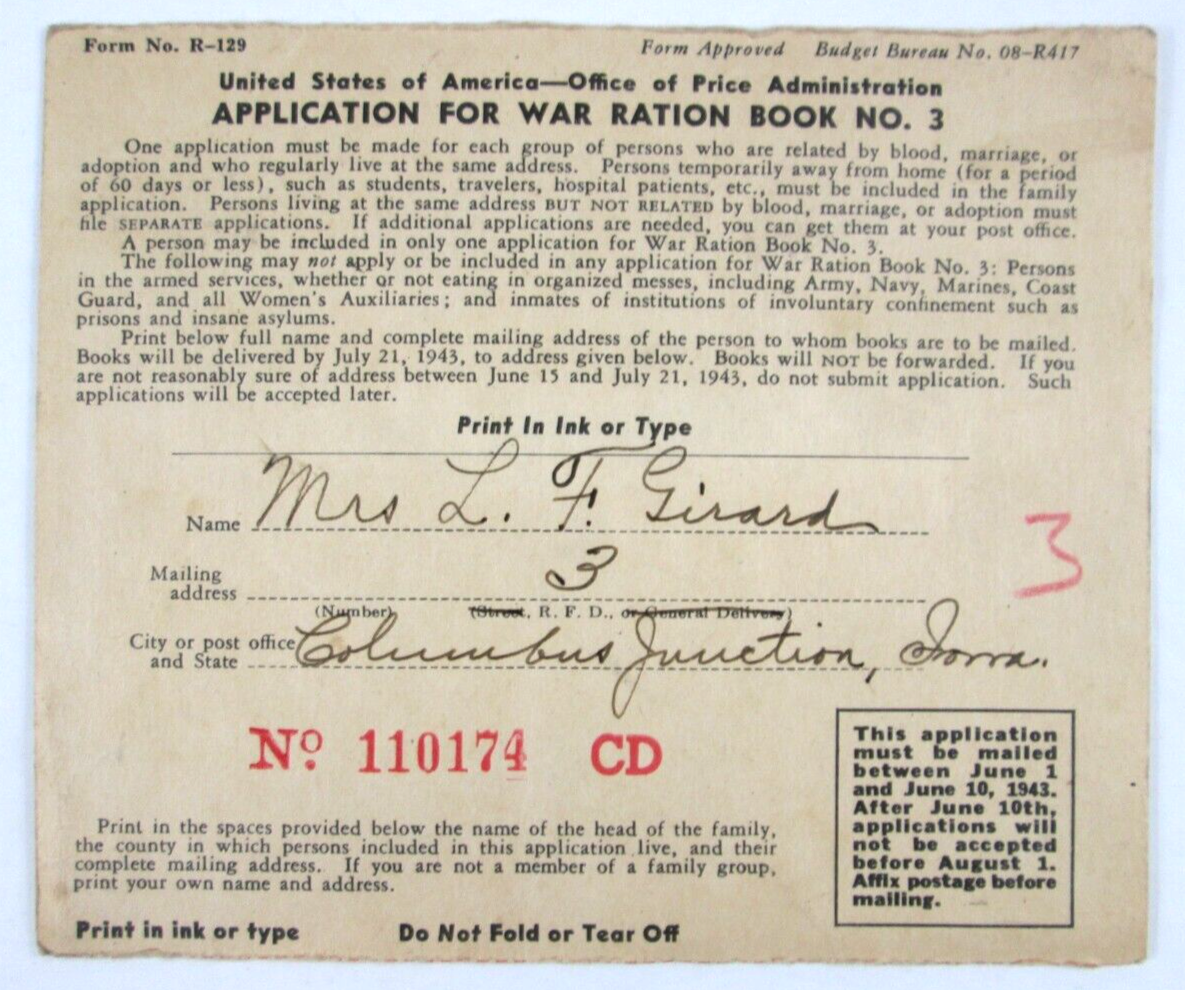 Form No. R-129
Form Approved Budget Bureau No. 08-R417
United States of America—Office of Price Administration
APPLICATION FOR WAR RATION BOOK NO. 3
One application must be made for each group of persons who are related by blood, marriage, or
adoption and who regularly live at the same address. Persons temporarily away from home (for a period
of 60 days or less), such as students, travelers, hospital patients, etc., must be included in the family
application. Persons living at the same address BUT NOT RELATED by blood, marriage, or adoption must
file SEPARATE applications. If additional applications are needed, you can get them at your post office.
A person may be included in only one application for War Ration Book No. 3.
The following may not apply or be included in any application for War Ration Book No. 3: Persons
in the armed services, whether or not eating in organized messes, including Army, Navy, Marines, Coast
Guard, and all Women's Auxiliaries; and inmates of institutions of involuntary confinement such as
prisons and insane asylums.
Print below full name and complete mailing address of the person to whom books are to be mailed.
Books will be delivered by July 21, 1943, to address given below. Books will NOT be forwarded. If you
are not reasonably sure of address between June 15 and July 21, 1943, do not submit application. Such
applications will be accepted later.
Print In Ink or Type
Name Mrs L. F. Girard
3
Mailing
address 3
(Number) (Street, R. F. D., or General Delivery)
City or post office
and State Columbus Junction, Iowa.
No 110174 CD
This application
must be mailed
between June 1
and June 10, 1943.
After June 10th,
applications will
not be accepted
before August 1.
Affix postage before
mailing.
Print in the spaces provided below the name of the head of the family,
the county in which persons included in this application live, and their
complete mailing address. If you are not a member of a family group,
print your own name and address.
Print in ink or type Do Not Fold or Tear Off